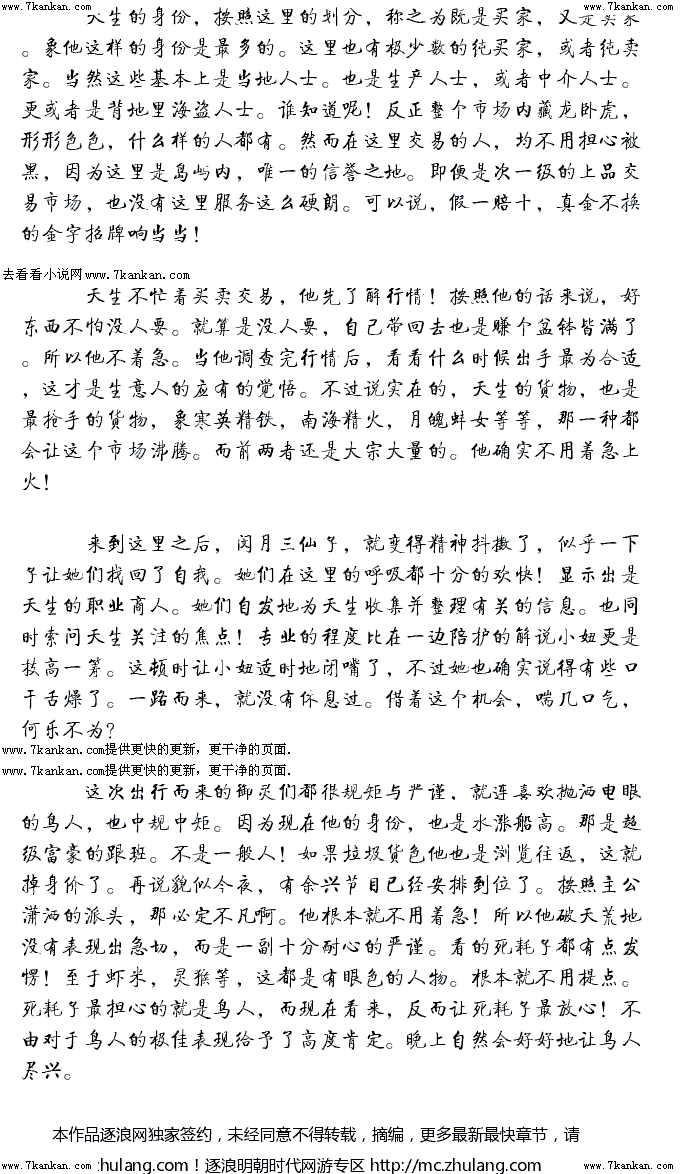 www.7kankan.com www.7kankan.com
天生的身份，按照这里的划分，称之为既是买家，又是卖家
。象他这样的身份是最多的。这里也有极少数的纯买家，或者纯卖
家。当然这些基本上是当地人士。也是生产人士，或者中介人士。
更或者是背地里海盗人士。谁知道呢！反正整个市场内藏龙卧虎，
形形色色，什么样的人都有。然而在这里交易的人，均不用担心被
黑，因为这里是岛屿内，唯一的信誉之地。即便是次一级的上品交
易市场，也没有这里服务这么硬朗。可以说，假一赔十，真金不换
的金字招牌响当当！
去看看小说网www.7kankan.com
天生不忙着买卖交易，他先了解行情！按照他的话来说，好
东西不怕没人要。就算是没人要，自己带回去也是赚个盆钵皆满了
。所以他不着急。当他调查完行情后，看看什么时候出手最为合适
，这才是生意人的应有的觉悟。不过说实在的，天生的货物，也是
最抢手的货物，象寒英精铁，南海精火，月魄蚌女等等，那一种都
会让这个市场沸腾。而前两者还是大宗大量的。他确实不用着急上
火！
来到这里之后，闵月三仙子，就变得精神抖擞了，似乎一下
子让她们找回了自我。她们在这里的呼吸都十分的欢快！显示出是
天生的职业商人。她们自发地为天生收集并整理有关的信息。也同
时索问天生关注的焦点！专业的程度比在一边陪护的解说小妞更是
拔高一筹。这顿时让小妞适时地闭嘴了，不过她也确实说得有些口
干舌燥了。一路而来，就没有休息过。借着这个机会，喘几口气，
何乐不为？
www.7kankan.com提供更快的更新，更干净的页面.
www.7kankan.com提供更快的更新，更干净的页面.
这次出行而来的御灵们都很规矩与严谨，就连喜欢抛洒电眼
的鸟人，也中规中矩。因为现在他的身份，也是水涨船高。那是超
级富豪的跟班。不是一般人！如果垃圾货色他也是浏览往返，这就
掉身价了。再说貌似今夜，有余兴节目已经安排到位了。按照主公
潇洒的派头，那必定不凡啊。他根本就不用着急！所以他破天荒地
没有表现出急切，而是一副十分耐心的严谨。看的死耗子都有点发
愣！至于虾米，灵猴等，这都是有眼色的人物。根本就不用提点。
死耗子最担心的就是鸟人，而现在看来，反而让死耗子最放心！不
由对于鸟人的极佳表现给予了高度肯定。晚上自然会好好地让鸟人
尽兴。
本作品逐浪网独家签约，未经同意不得转载，摘编，更多最新最快章节，请
www.7kankan.com zhulang.com！逐浪明朝时代网游专区 http://mc.zhulang.com www.7kankan.com